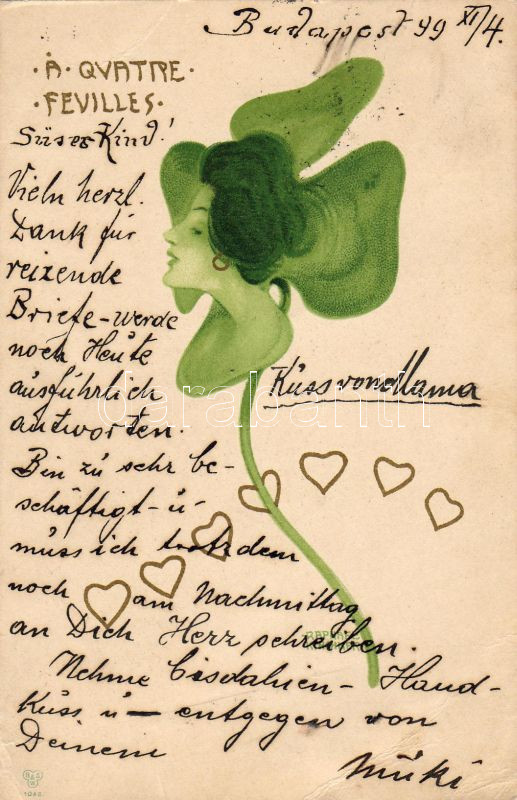 Budapest 99 XI/4.
· À · QVATRE ·
· FEVILLES ·
Süses Kind!
Vieln herzl.
Dank für
reizende
Briefe - werde
noch Heute
ausführlich
antworten.
Kuss von Mama
Bin zu sehr be-
schäftigt - u -
muss ich trotzdem
noch am Nachmittag
an Dich Herz schreiben.
Nehme bisdahien - Hand-
Kuss u - entgegen von
Deinem
Müki
darabanth
1046